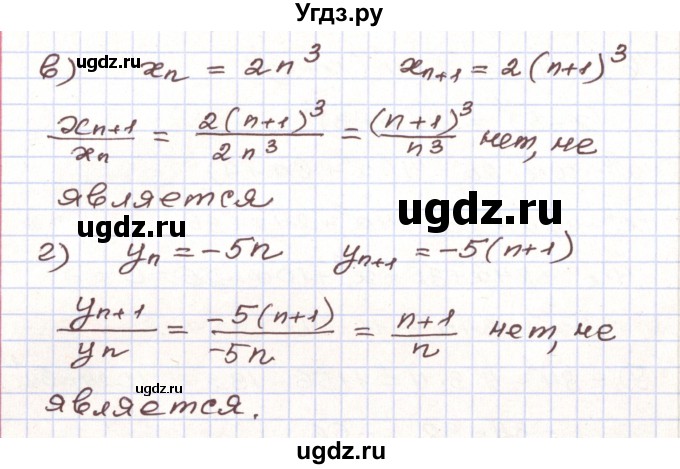 Угдз.ру
в) xₙ = 2n³ xₙ₊₁ = 2(n+1)³
ugdz.ru
xₙ₊₁/xₙ = 2(n+1)³/2n³ = (n+1)³/n³ нет, не
является
ugdz.ru
ugdz.ru
г) yₙ = -5n yₙ₊₁ = -5(n+1)
yₙ₊₁/yₙ = -5(n+1)/-5n = n+1/n нет, не
ugdz.ru
является.
ugdz.ru